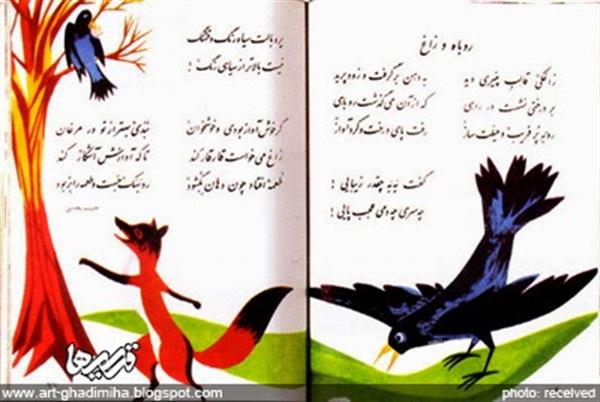 روباه و زاغ
زاغکی قالب پنیری دید به دهن بر گرفت و زود پرید
بر درختی نشست در راهی که از آن می گذشت روباهی
روبه پر فریب و حیلت ساز رفت پای درخت و کرد آواز
گفت به به چقدر زیبایی !
چه سری چه دمی عجب پایی !
پر و بالت سیاه رنگ و قشنگ
نیست بالاتر از سیاهی رنگ !
گر خوش آواز بودی و خوشخوان نبدی بهتر از تو در مرغان
زاغ می خواست قار قار کند تا که آوازش آشکار کند
طعمه افتاد چون دهان بگشود روبهک جست و طعمه را بربود
حبیب یغمایی
قدیمیها
www.art-ghadimiha.blogspot.com
photo: received